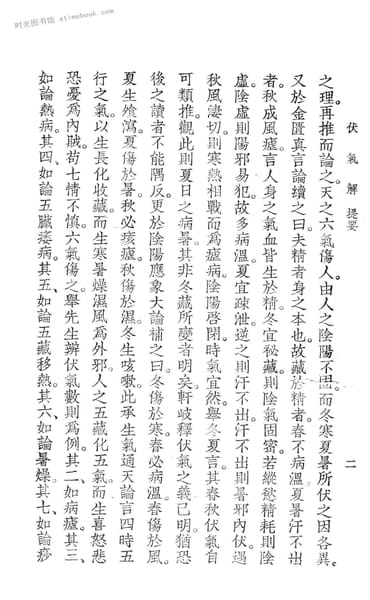 时光图书馆 - atimebook.com
伏氣解 提要
二
之理。再推而論之。天之六氣傷人。由人之陰陽不固。而冬寒夏暑所伏之因各異。
又於金匱真言論續之曰。夫精者身之本也。故藏於精者。春不病溫。夏暑汗不出
者。秋成風瘧。言人身之氣血皆生於精。冬宜秘藏。則陰氣固密。若縱慾精耗則陰
虛。陰虛則陽邪易犯。故多病溫。夏宜疏泄。逆之則汗不出。汗不出則暑邪內伏。遇
秋風凄切。則寒熱相戰而爲瘧病。陰陽啓閉。時氣宜然。舉冬夏言。其春秋伏氣自
可類推。觀此則夏日之病暑。其非冬藏所變者明矣。軒岐釋伏氣之義已明。猶恐
後之讀者不能隅反。更於陰陽應象大論補之曰。冬傷於寒。春必病溫。春傷於風。
夏生飧瀉。夏傷於暑。秋必痎瘧。秋傷於濕。冬生咳嗽。此承生氣通天論言四時五
行之氣。以生長化收藏。而生寒暑燥濕風爲外邪。人之五藏化五氣。而生喜怒悲
恐憂爲內賊。苟七情不慎。六氣傷之。舉先生辨伏氣數則爲例。其二、如病瘧。其三、
如論熱病。其四、如論五臟痿病。其五、如論五藏移熱。其六、如論暑燥。其七、如論痧